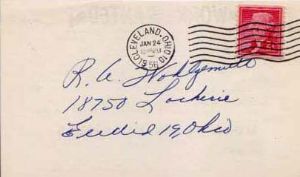 CLEVELAND, OHIO
JAN 24
1956
R. A. Wohlgemuth
18750 Lockerie
Euclid 19 Ohio